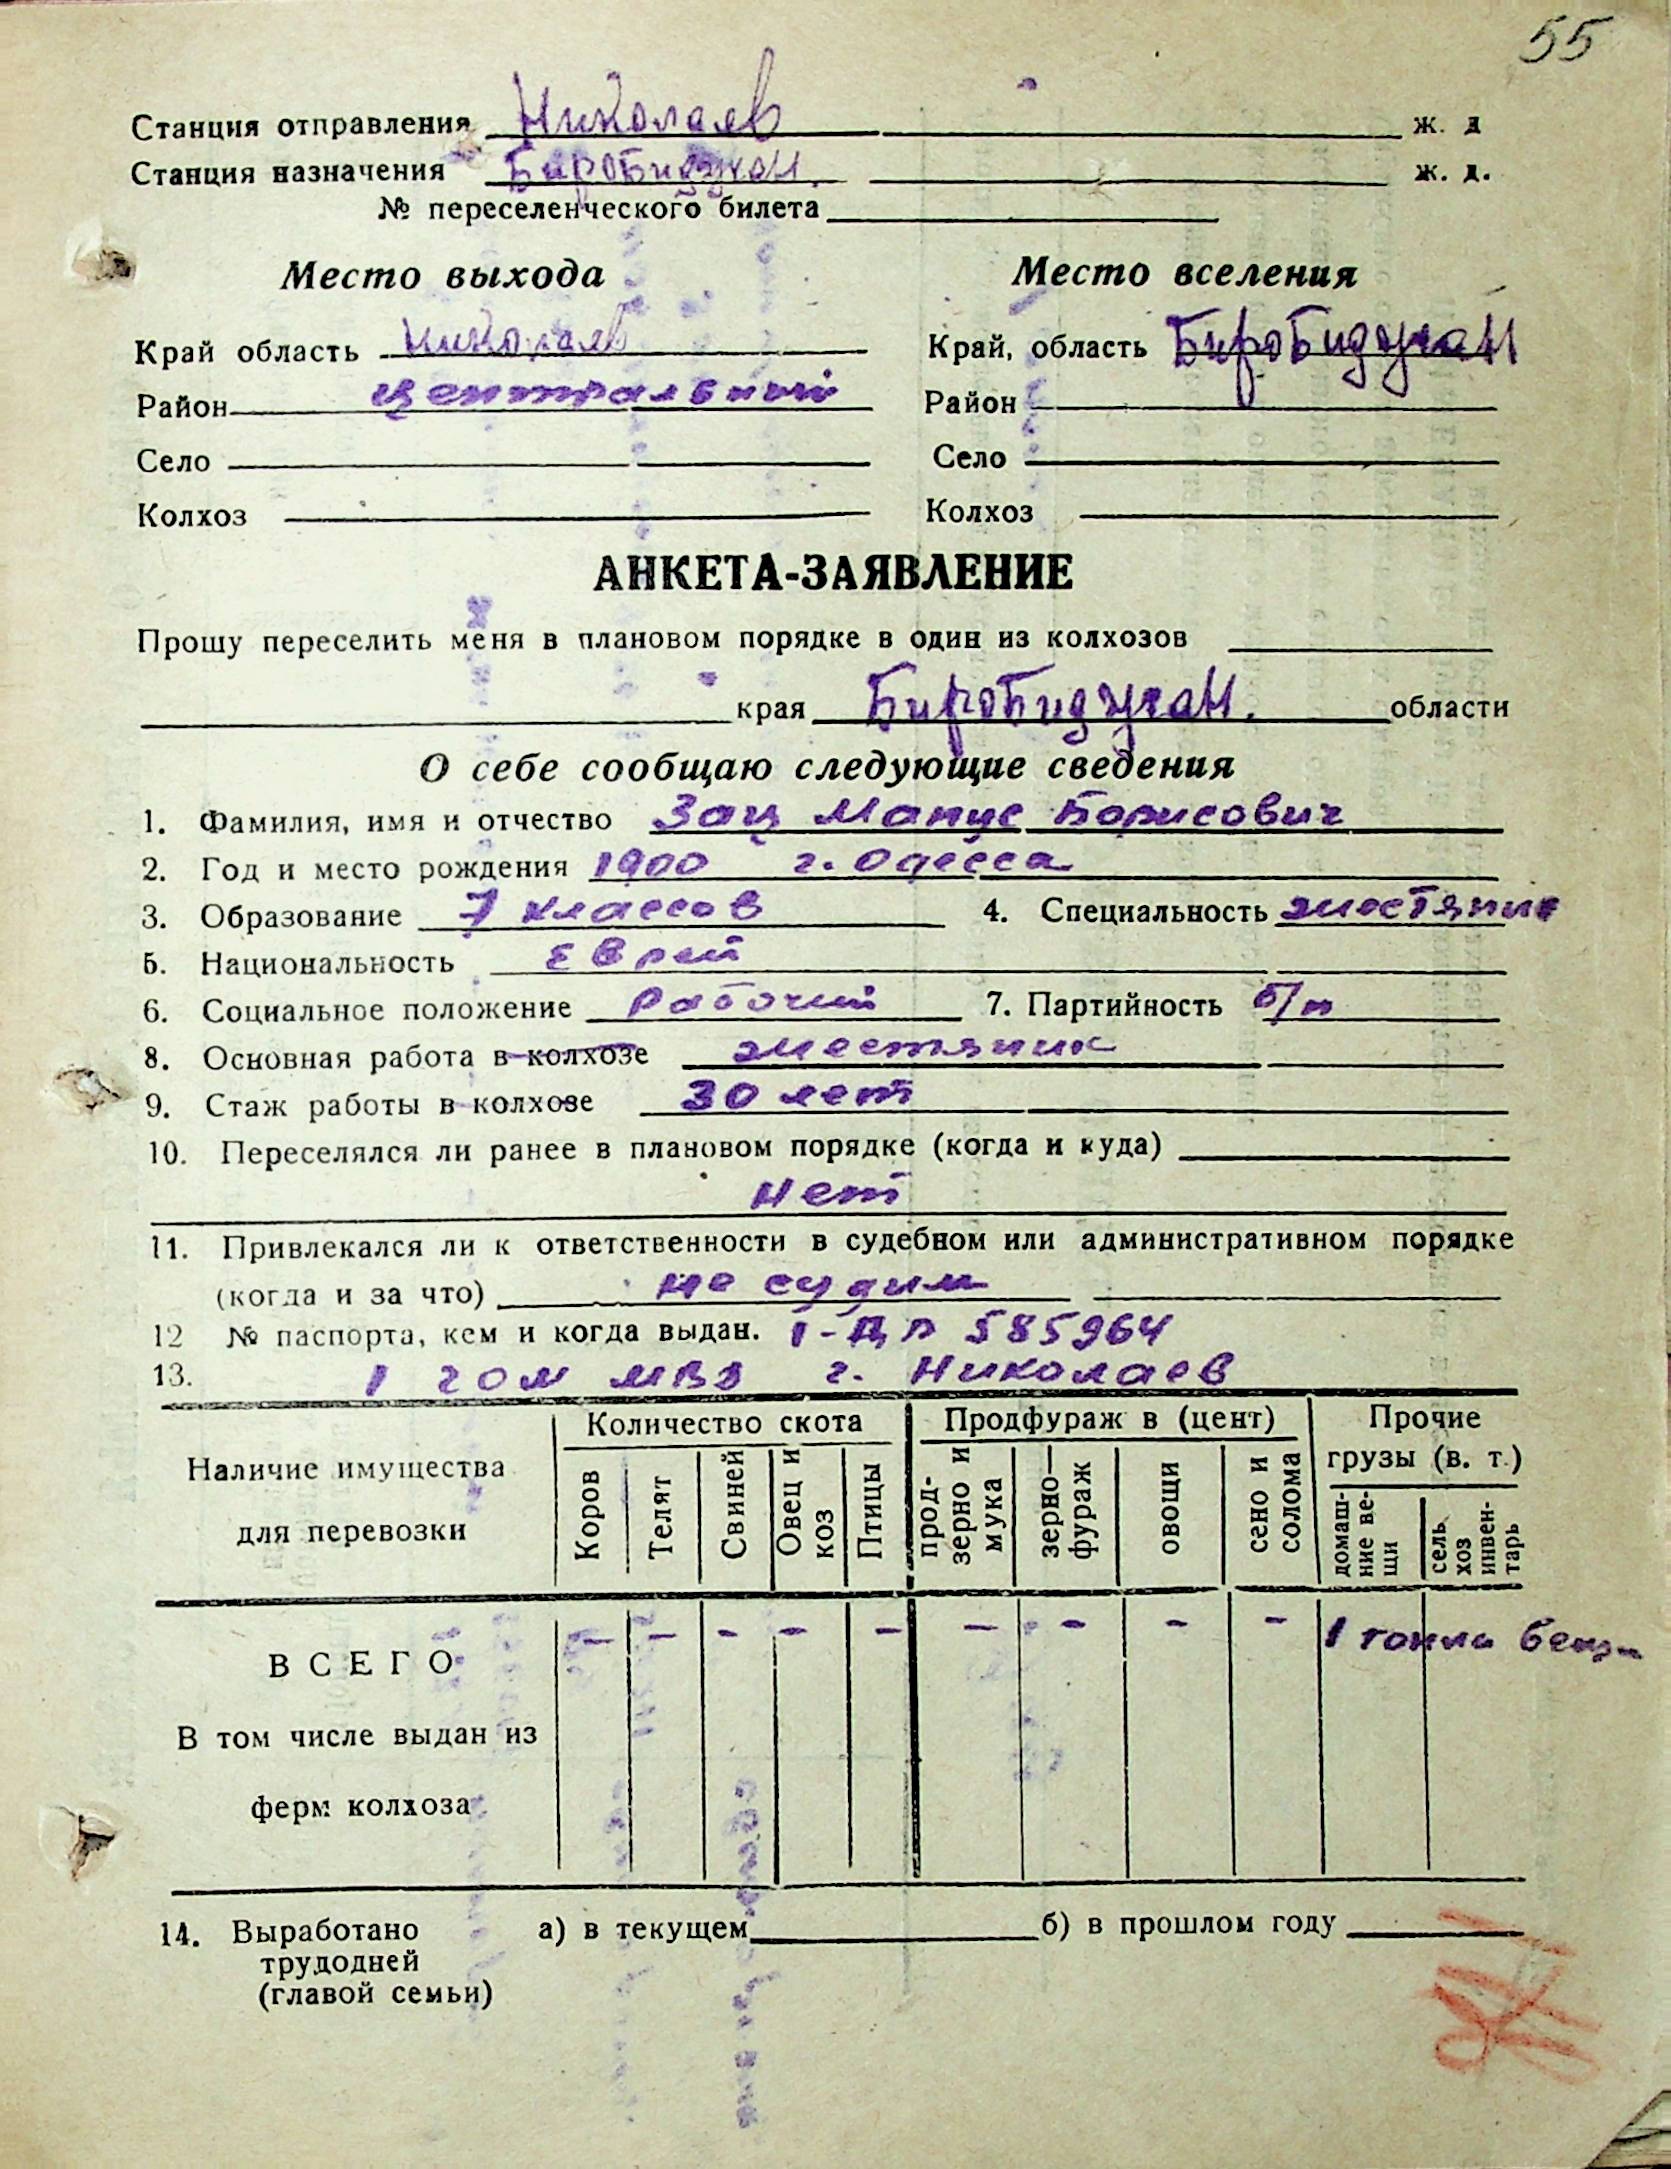 55
Станция отправления Николаев ж. д
Станция назначения Биробиджан. ж. д.
№ переселенческого билета
Место выхода
Место вселения
Край область Николаев
Край, область Биробиджан
Район Центральный
Район
Село
Село
Колхоз
Колхоз
АНКЕТА-ЗАЯВЛЕНИЕ
Прошу переселить меня в плановом порядке в один из колхозов
края Биробиджан. области
О себе сообщаю следующие сведения
1. Фамилия, имя и отчество Зац Манус Борисович
2. Год и место рождения 1900 г. Одесса
3. Образование 7 классов 4. Специальность жестяник
5. Национальность Еврей
6. Социальное положение Рабочий 7. Партийность б/п
8. Основная работа в колхозе жестяник
9. Стаж работы в колхозе 30 лет
10. Переселялся ли ранее в плановом порядке (когда и куда)
Нет
11. Привлекался ли к ответственности в судебном или административном порядке
(когда и за что) не судим
12 № паспорта, кем и когда выдан. 585964
13. 1 гом МВД г. Николаев
Наличие имущества
для перевозки
Количество скота
Продфураж в (цент)
Прочие
грузы (в. т.)
Коров
Телят
Свиней
Овец и
коз
Птицы
прод-
зерно и
мука
зерно—
фураж
овощи
сено и
солома
домаш-
ние ве-
щи
сель
хоз
инвен-
тарь
ВСЕГО - - - - - - - - - 1 тонна
В том числе выдан из
ферм колхоза
14. Выработано а) в текущем б) в прошлом году
трудодней
(главой семьи)